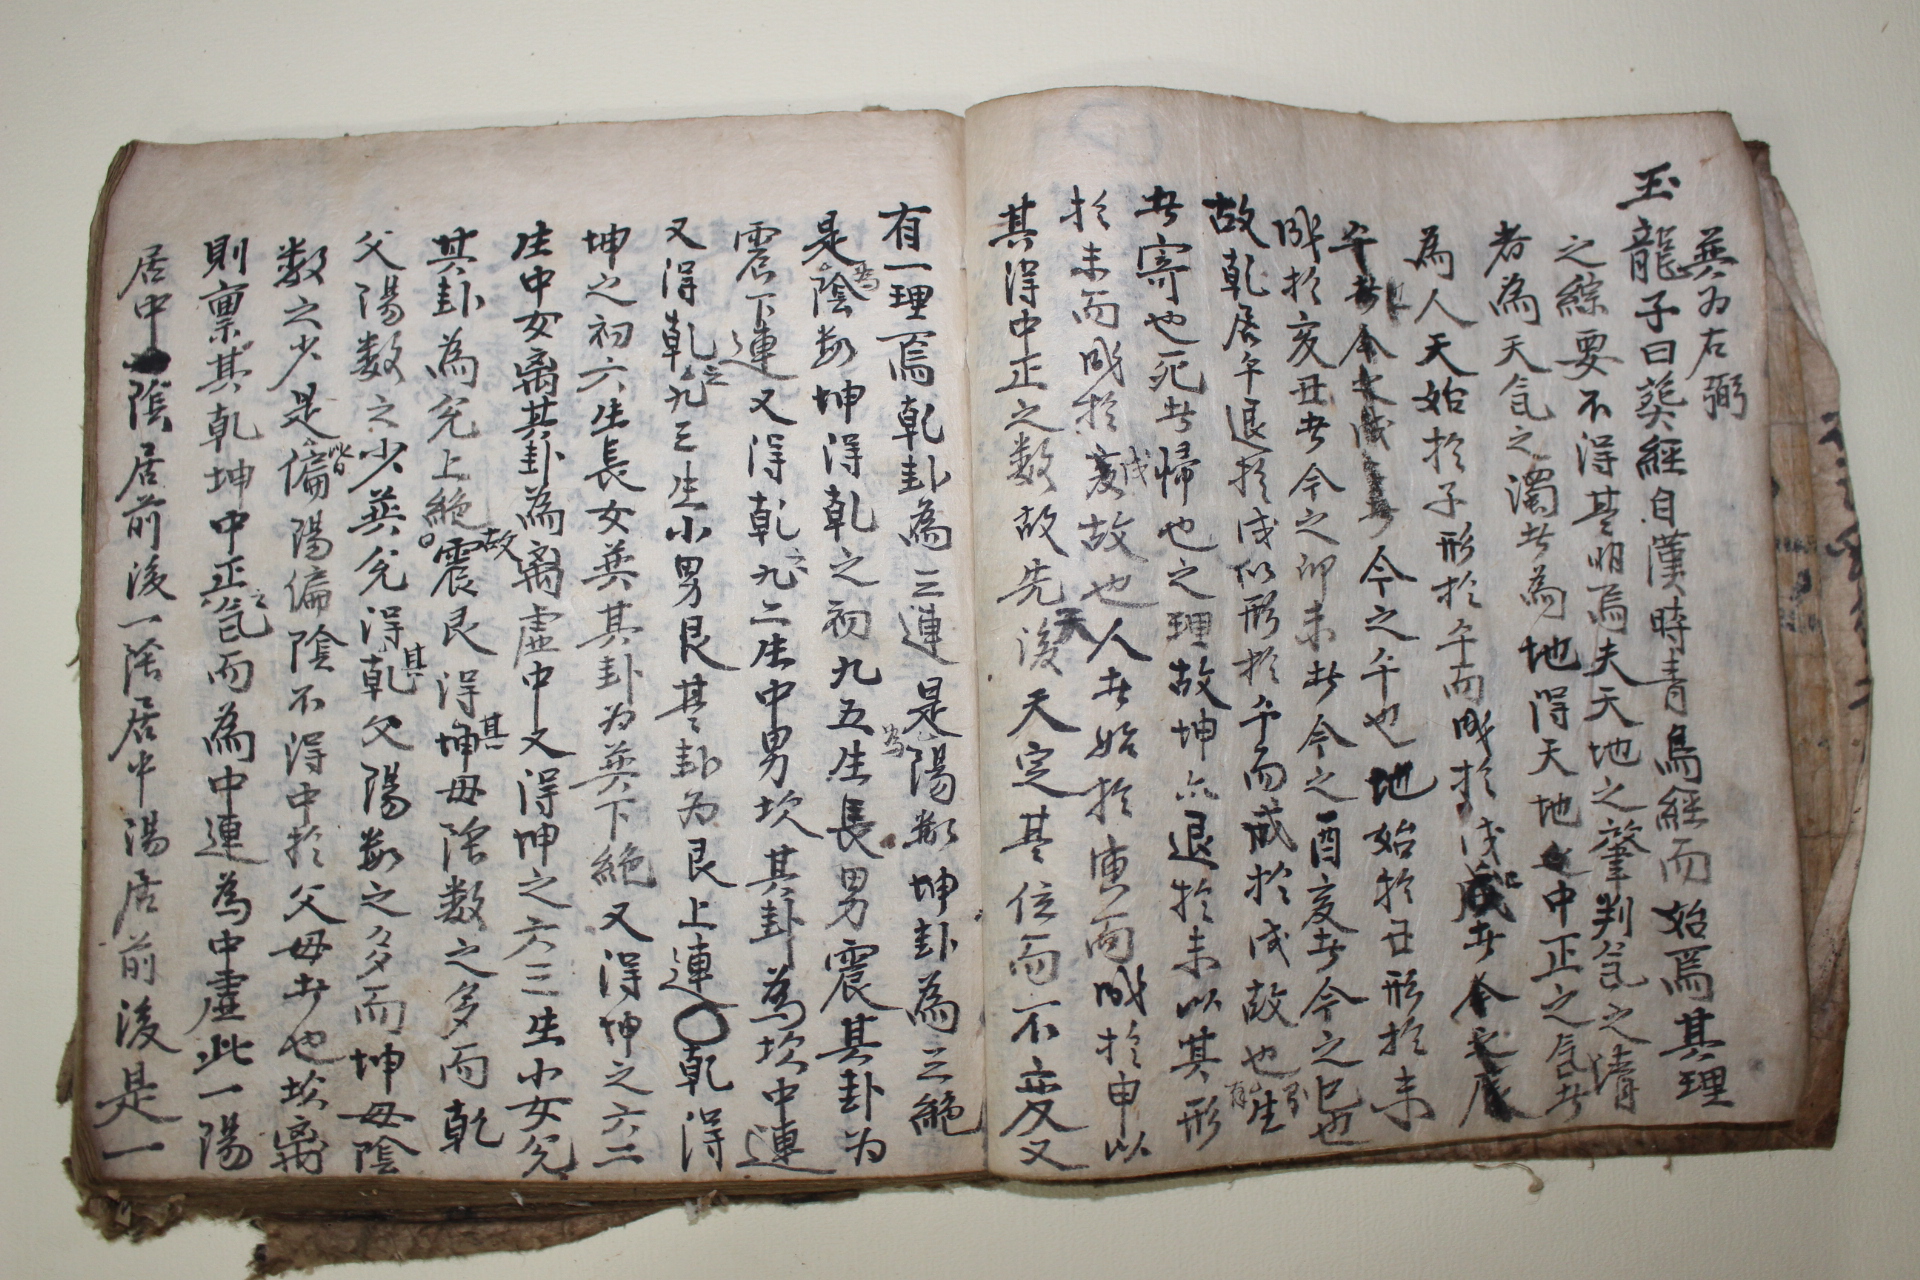 巽为右弼
玉龍子曰葬經自漢時青烏經而始焉其理
之綜要不得其明焉夫天地之肇判氣之清
者為天氣之濁者為地得天地之中正之氣者
為人天始於子形於午而成於戌者今之
午者今今之午也地始於丑形於未
成於亥丑者今之卯未者今之酉亥者今之巳也
故乾居午退於戌以形於午而成於戌故也生
者寄也死者帰也之理故坤亦退於未以其形
於未而成於亥故也人者始於寅而成於申以
其得中正之数故先後天定其位而不变又
有一理焉乾卦為三連是為陽数坤卦為三絶
是為陰数坤得乾之初九五生長男震其卦为
震下連又得乾之九二生中男坎其卦為坎中連
又得乾之九三生小男艮其卦为艮上連〇乾得
坤之初六生長女巽其卦为巽下絶又得坤之六二
生中女离其卦為离虚中又得坤之六三生小女兑
其卦為兑上絶〇故震艮得坤其母陰数之多而乾
父陽数之少巽兑得乾其父陽数之多而坤母陰
数之少是皆偏陽偏陰不得中於父母者也坎离
則稟其乾坤中正之氣而為中連為中虚此一陽
居中陰居前後一陰居中陽居前後是一